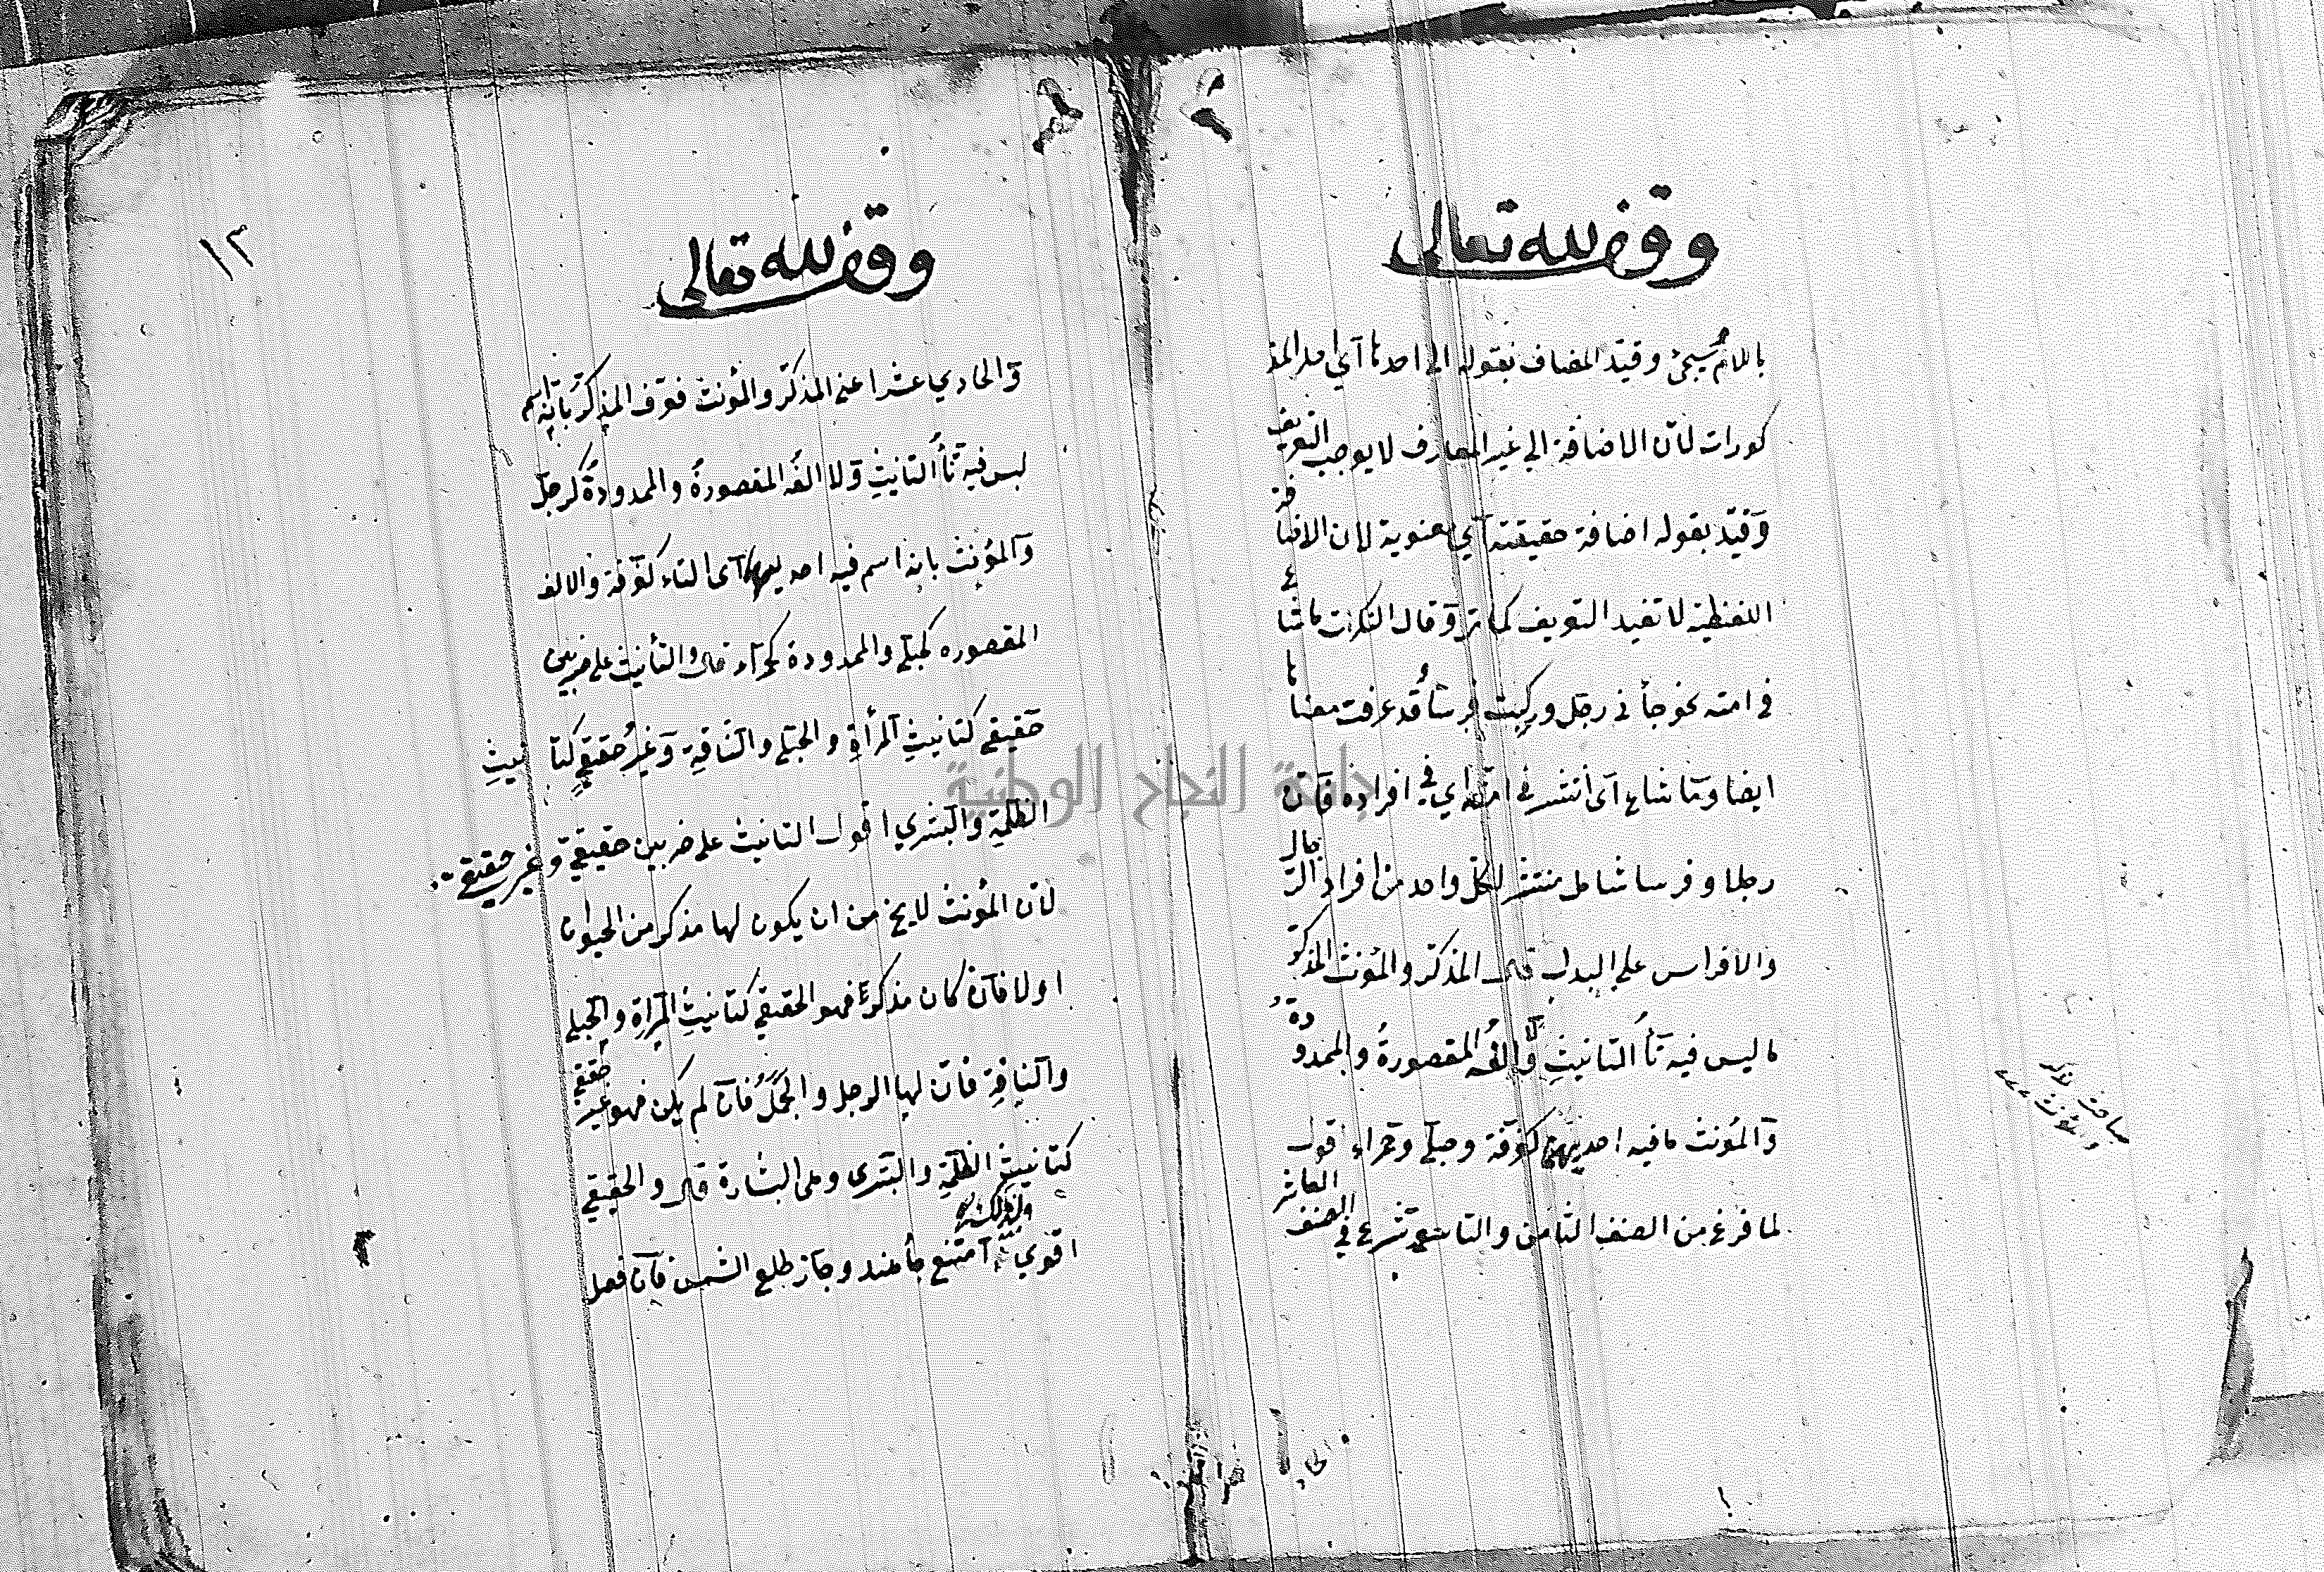 وقف لله تعالى
باللام سيجئ وقيد المضاف بقوله الى احدها آي احد المذ
كورات لأن الاضافة الي غير المعارف لا يوجب التعريف
وقيد بقوله اضافة حقيقته آي معنوية لان الاضافة
اللفظية لا تفيد التعريف كما مر وقال النكرات ما شاع
في امته نحو جأني رجل وركبت فرسا قد عرفت معناها
ايضا وما شاع آي انتشر في امته اي في افراده فان
رجلا وفرسا شامل منتشر لكل واحد من افراد الرجال
والافراس علي البدل قال المذكر والمؤنث المذكر
ما ليس فيه تأ التانيث ولا الفه المقصورة والممدودة
والمؤنث ما فيه احديهن كغرفة وحبلي وحمراء اقول
لما فرغ من الصنف الثامن والتاسع شرع في الصنف العاشر
مباحث المذكر
والمؤنث
وقف لله تعالى
١٢
والحادي عشر اعني المذكر والمؤنث فعرف المذكر بانه اسم
ليس فيه تأ التانيث ولا الفه المقصورة والممدودة كرجل
والمؤنث بانه اسم فيه احديها آي التاء كغرفة والالف
المقصوره كحبلي والممدودة كحرآء قال والتأنيث علي ضربين
حقيقي كتانيث المرأة والحبلي والناقة وغير حقيقي كتانيث
الظلمة والبشري اقول التانيث علي ضربين حقيقي وغير حقيقي
لان المؤنث لا يخ من ان يكون لها مذكر من الحيوان
اولا فان كان مذكرا فهو الحقيقي كتانيث المرأة والحبلي
والناقة فان لها الرجل والجمل فان لم يكن فهو غير حقيقي
كتانيث الظلمة والبشري وهي البشارة قال والحقيقي
اقوي ولذلك امتنع جأ هند وجاز طلع الشمس فان فصل
جامعة النجاح الوطنية